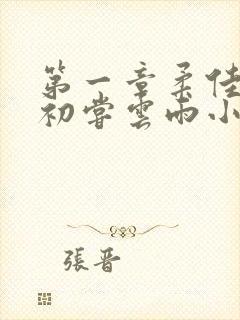 第一章柔佳
初尝雲雨小
張晋